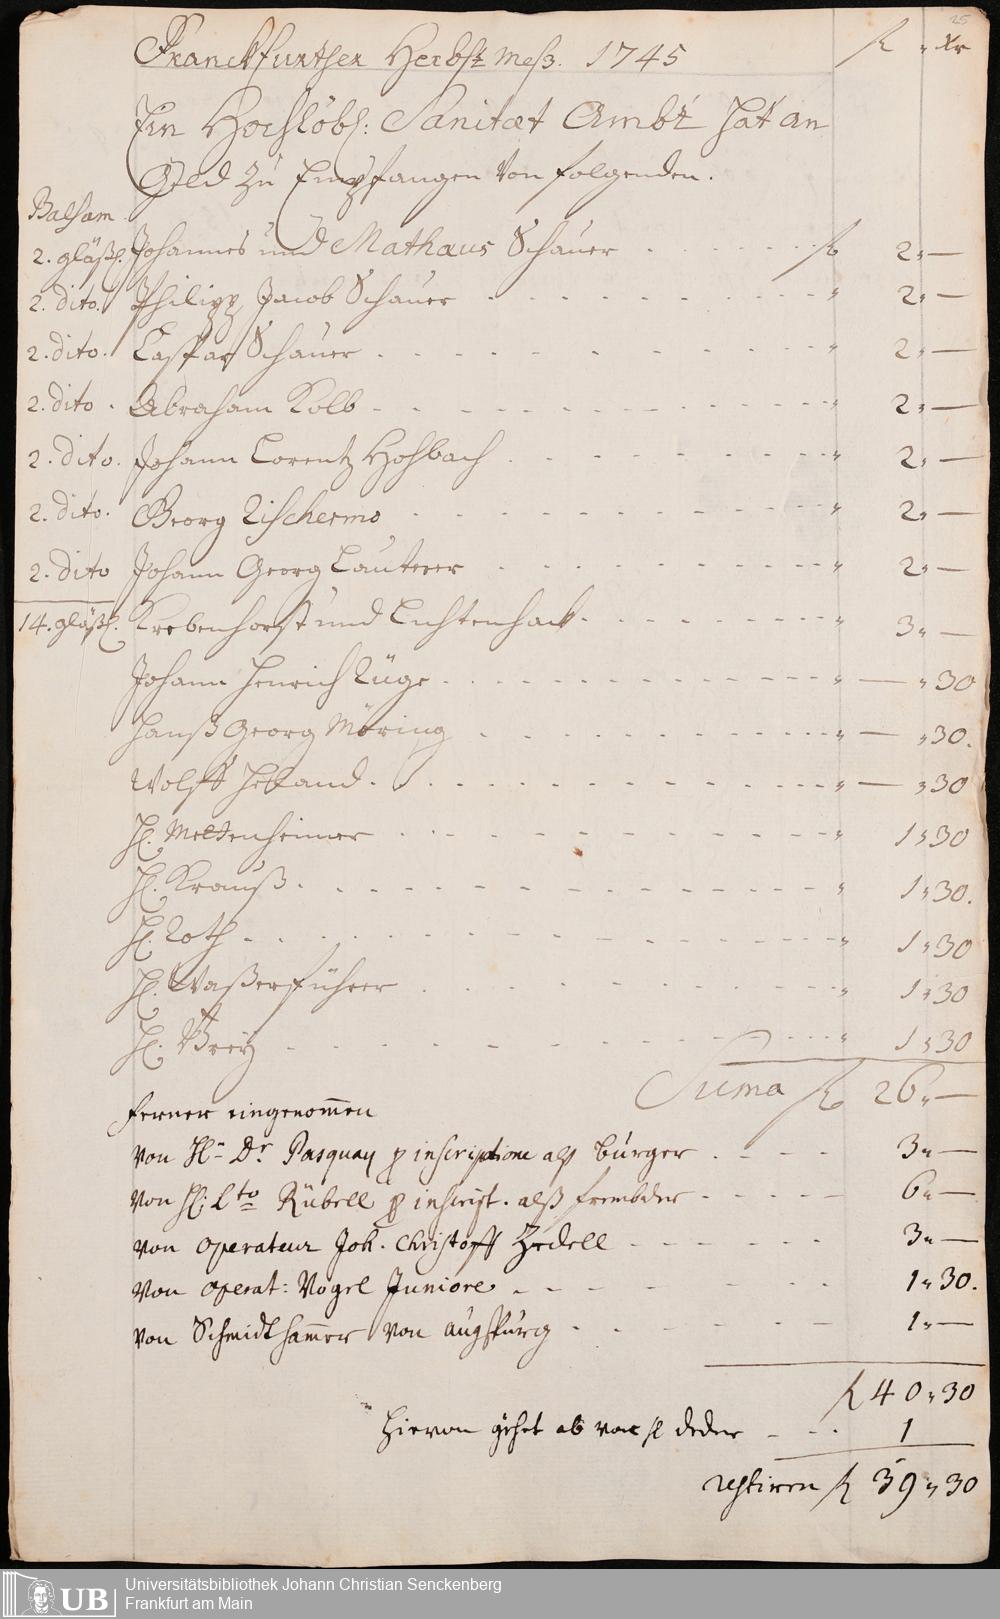 25
Franckfurther Herbst Meß. 1745 fl „ Xr
Ein Hochlöbl: Sanitæt Ambt hat an
Geld zu Empfangen von folgenden.
Balsam
2. gläßl. Johannes und Mathaus Schauer . . . . . . fl 2„—
2. dito. Philipp Jacob Schauer - - - - - - - „ 2„—
2. dito. Caspar Schauer . - - - - - - - - „ 2„—
2. dito. Abraham Kolb - - - - - - - - - „ 2„—
2. dito. Johann Lorentz Hohbach . - - - - - - „ 2„—
2. dito. Georg Zischermo . - - - - - - - - „ 2„—
2. dito Johann Georg Lauterer - - - - - - - „ 2„—
14. gläßl. Krebenhorst und Lichtenhack - - - - - - „ 3„—
Johann Henrich Züge - - - - - - - - „ — „30
Hanß Georg Möring - - - - - - - - „ — „30.
Wolff Heband - - - - - - - - - „ — „30
H. Mettenheimer - - - - - - - - - „ 1„30
H. Krauß. - - - - - - - - - - „ 1„30.
H. Roth - - - - - - - - - - - „ 1„30
H. Waßerführer - - - - - - - - „ 1„30
H. Breÿ - - - - - - - - - - „ 1„30
Suma fl 26„—
ferner eingenommen
von H. Dr. Pasquay p inscriptione alß bürger - - - - 3„—
von H. Lto Rübell p inscript. alß frembder - - - - 6„—
von Operateur Joh. Christoff Zedell - - - - - - 3„—
von operat: Vogel Juniore - - - - - - - 1„30.
von Schmidthammer von Augspurg - - - - - - 1„—
fl 40„30
Hiervon gehet ab von H deder - - - 1
restiren fl 39„30
UB
Universitätsbibliothek Johann Christian Senckenberg
Frankfurt am Main